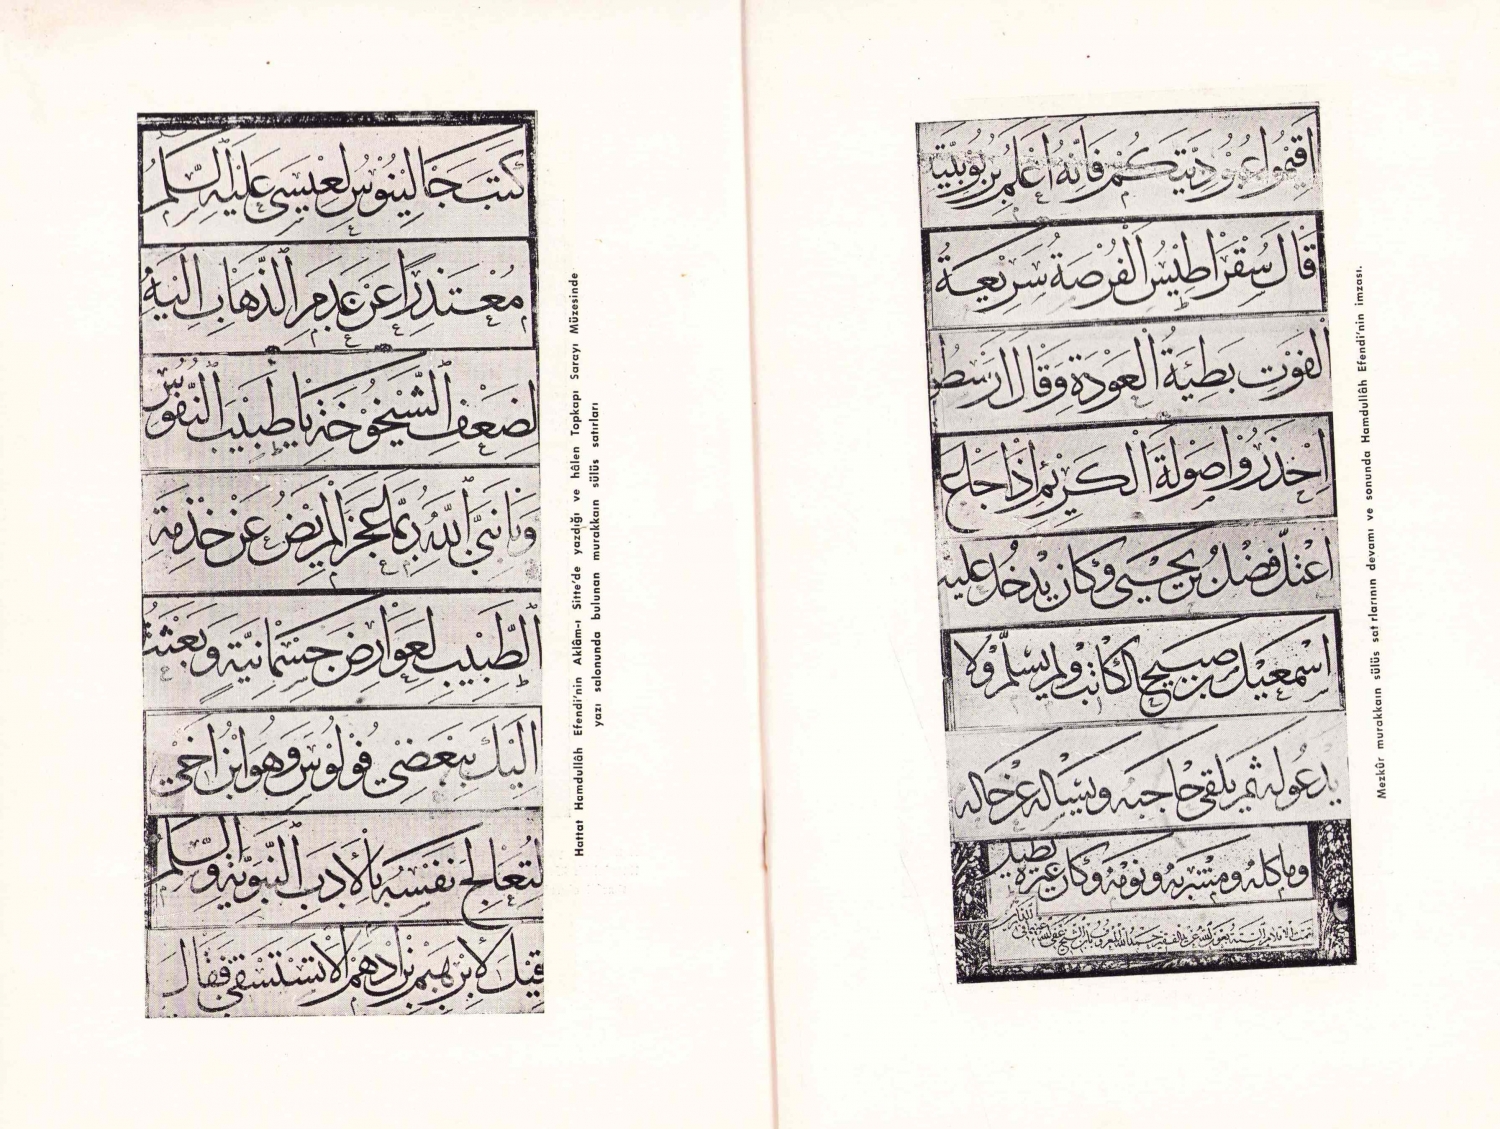 كتب جالينوس لعيسى عليه السلم
معتذرا عن عدم الذهاب اليه
لضعف الشيخوخة يا طبيب النفوس
ونبي الله ربما عجز المريض عن خدمة
الطبيب لعوارض جسمانية وبعثت
اليك ببعضي فولوس وهو ابن اخي
لتعالج نفسه بالأدب النبوية والسلم
قيل لأبرهيم بن ادهم الا تستسقي فقال
Hattat Hamdullâh Efendi'nin Aklâm-ı Sitte'de yazdığı ve hâlen Topkapı Sarayı Müzesinde
yazı salonunda bulunan murakkaın sülüs satırları
اقيموا عبوديتكم فانه اعلم بربوبيته
قال سقراطيس الفرصة سريعة
الفوت بطيئة العودة وقال ارسطو
احذروا صولة الكريم اذا جاع
اعتل فضل بن يحيى وكان يدخل عليه
اسمعيل بن صبيح الكاتب ولم يسلم ولا
يدعو له ثم يلقى حاجبه ويسأله عن حاله
وماكله ومشربه ونومه وكان غيره يطيل
تمت الاقلام الستة بعون الله
Mezkûr murakkaın sülüs satırlarının devamı ve sonunda Hamdullâh Efendi'nin imzası.